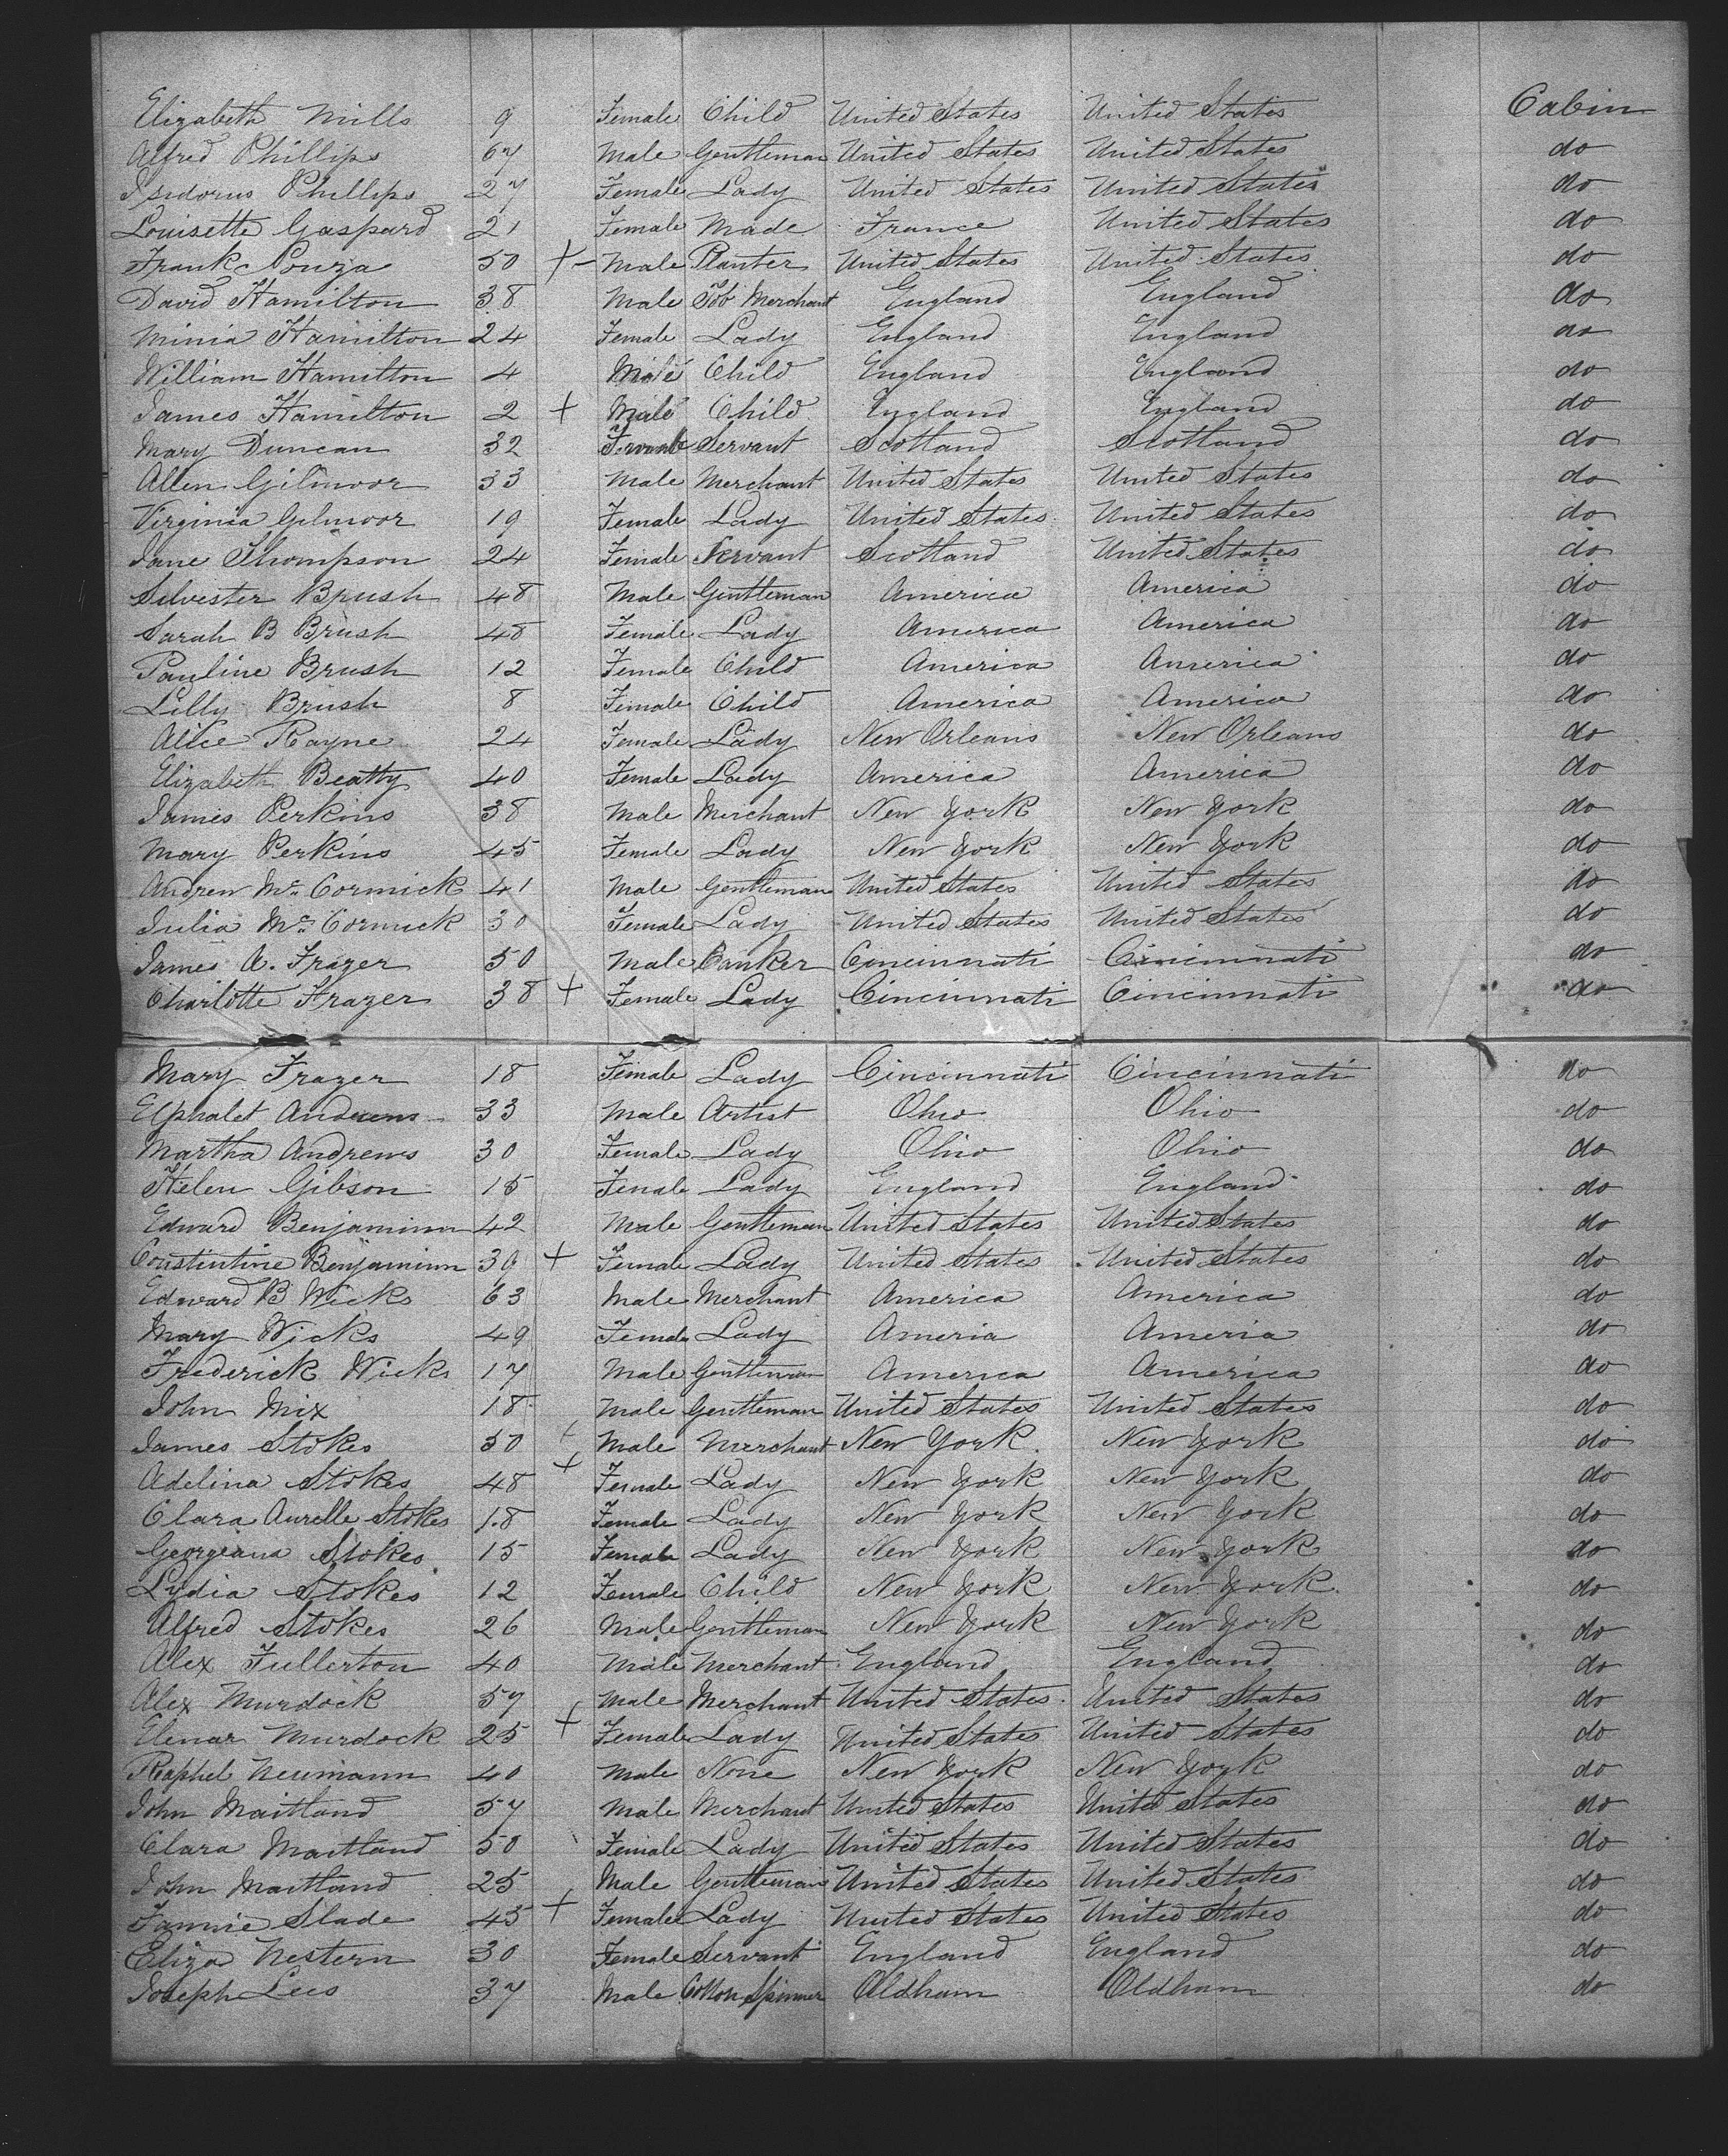 Elizabeth Mills 9 Female Child United States United States Cabin
Alfred Phillips 67 Male Gentleman United States United States do
Isidorus Phillips 27 Female Lady United States United States do
Louisette Gaspard 21 Female Made France United States do
Frank Pouza 50 + - Male Planter United States United States do
David Hamilton 38 Male Tob Merchant England England do
Minia Hamilton 24 Female Lady England England do
William Hamilton 4 Male Child England England do
James Hamilton 2 + Male Child England England do
Mary Duncan 32 Servant Scotland Scotland do
Allen Gilmoor 33 Male Merchant United States United States do
Virginia Gilmoor 19 Female Lady United States United States do
Jane Thompson 24 Female Servant Scotland United States do
Silvester Brush 48 Male Gentleman America America do
Sarah B Brush 48 Female Lady America America do
Pauline Brush 12 Female Child America America do
Lilly Brush 8 Female Child America America do
Alice Rayne 24 Female Lady New Orleans New Orleans do
Elizabeth Beatty 40 Female Lady America America do
James Perkins 38 Male Merchant New York New York do
Mary Perkins 45 Female Lady New York New York do
Andrew Mc Cormick 41 Male Gentleman United States United States do
Julia Mc Cormick 30 Female Lady United States United States do
James A. Frazer 50 Male Banker Cincinnati Cincinnati do
Charlotte Frazer 38 + Female Lady Cincinnati Cincinnati do
Mary Frazer 18 Female Lady Cincinnati Cincinnati do
Elphalet Andrews 33 Male Artist Ohio Ohio do
Martha Andrews 30 Female Lady Ohio Ohio do
Helen Gibson 15 Female Lady England England do
Edward Benjaminn 42 Male Gentleman United States United States do
Constintine Benjaminn 39 + Female Lady United States United States do
Edward B Wicks 63 Male Merchant America America do
Mary Wicks 49 Female Lady Ameria Ameria do
Frederick Wicks 17 Male Gentleman America America do
John Mix 18 Male Gentleman United States United States do
James Stokes 50 + Male Merchant New York New York do
Adelina Stokes 48 + Female Lady New York New York do
Clara Aurelle Stokes 18 Female Lady New York New York do
Georgeana Stokes 15 Female Lady New York New York do
Lydia Stokes 12 Female Child New York New York do
Alfred Stokes 26 Male Gentleman New York New York do
Alex Fullerton 40 Male Merchant England England do
Alex Murdock 57 Male Merchant United States United States do
Elenar Murdock 25 + Female Lady United States United States do
Raphel Neumann 40 Male None New York New York do
John Maitland 57 Male Merchant United States United States do
Clara Maitland 50 Female Lady United States United States do
John Maitland 25 Male Gentleman United States United States do
Fannie Slade 45 + Female Lady United States United States do
Eliza Nestern 30 Female Servant England England do
Joseph Lees 37 Male Cotton Spinner Oldham Oldham do